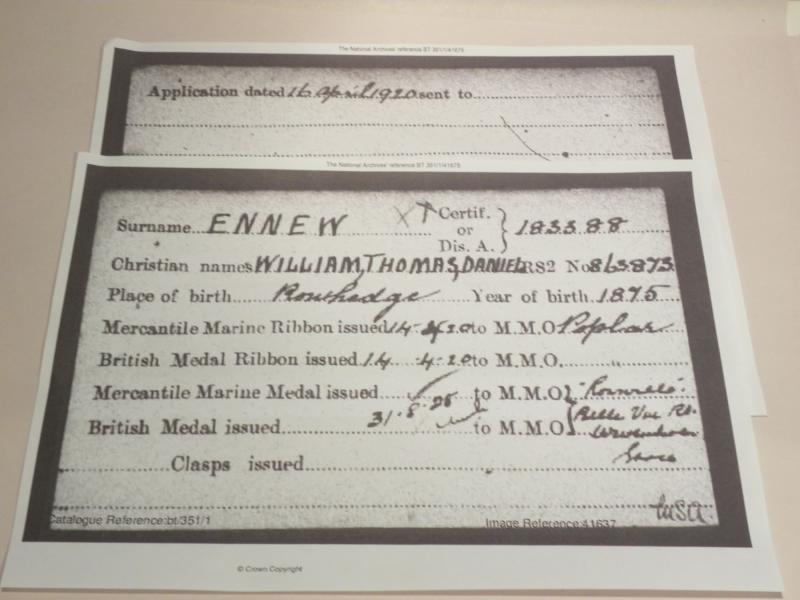 The National Archives' reference BT 351/1/41675
Application dated 16 April 1920 sent to
The National Archives' reference BT 351/1/41675
Surname ENNEW Certif. or Dis. A. } 183388
Christian names WILLIAM, THOMAS, DANIEL RS2 No 863873
Place of birth Rowhedge Year of birth 1875
Mercantile Marine Ribbon issued 14-4-20 to M.M.O. Poplar
British Medal Ribbon issued 14-4-20 to M.M.O. "
Mercantile Marine Medal issued to M.M.O.
British Medal issued 31.8.28 to M.M.O. Belle Vue Rd.
Wivenhoe
Clasps issued Essex
Catalogue Reference:bt/351/1 Image Reference:41637
© Crown Copyright